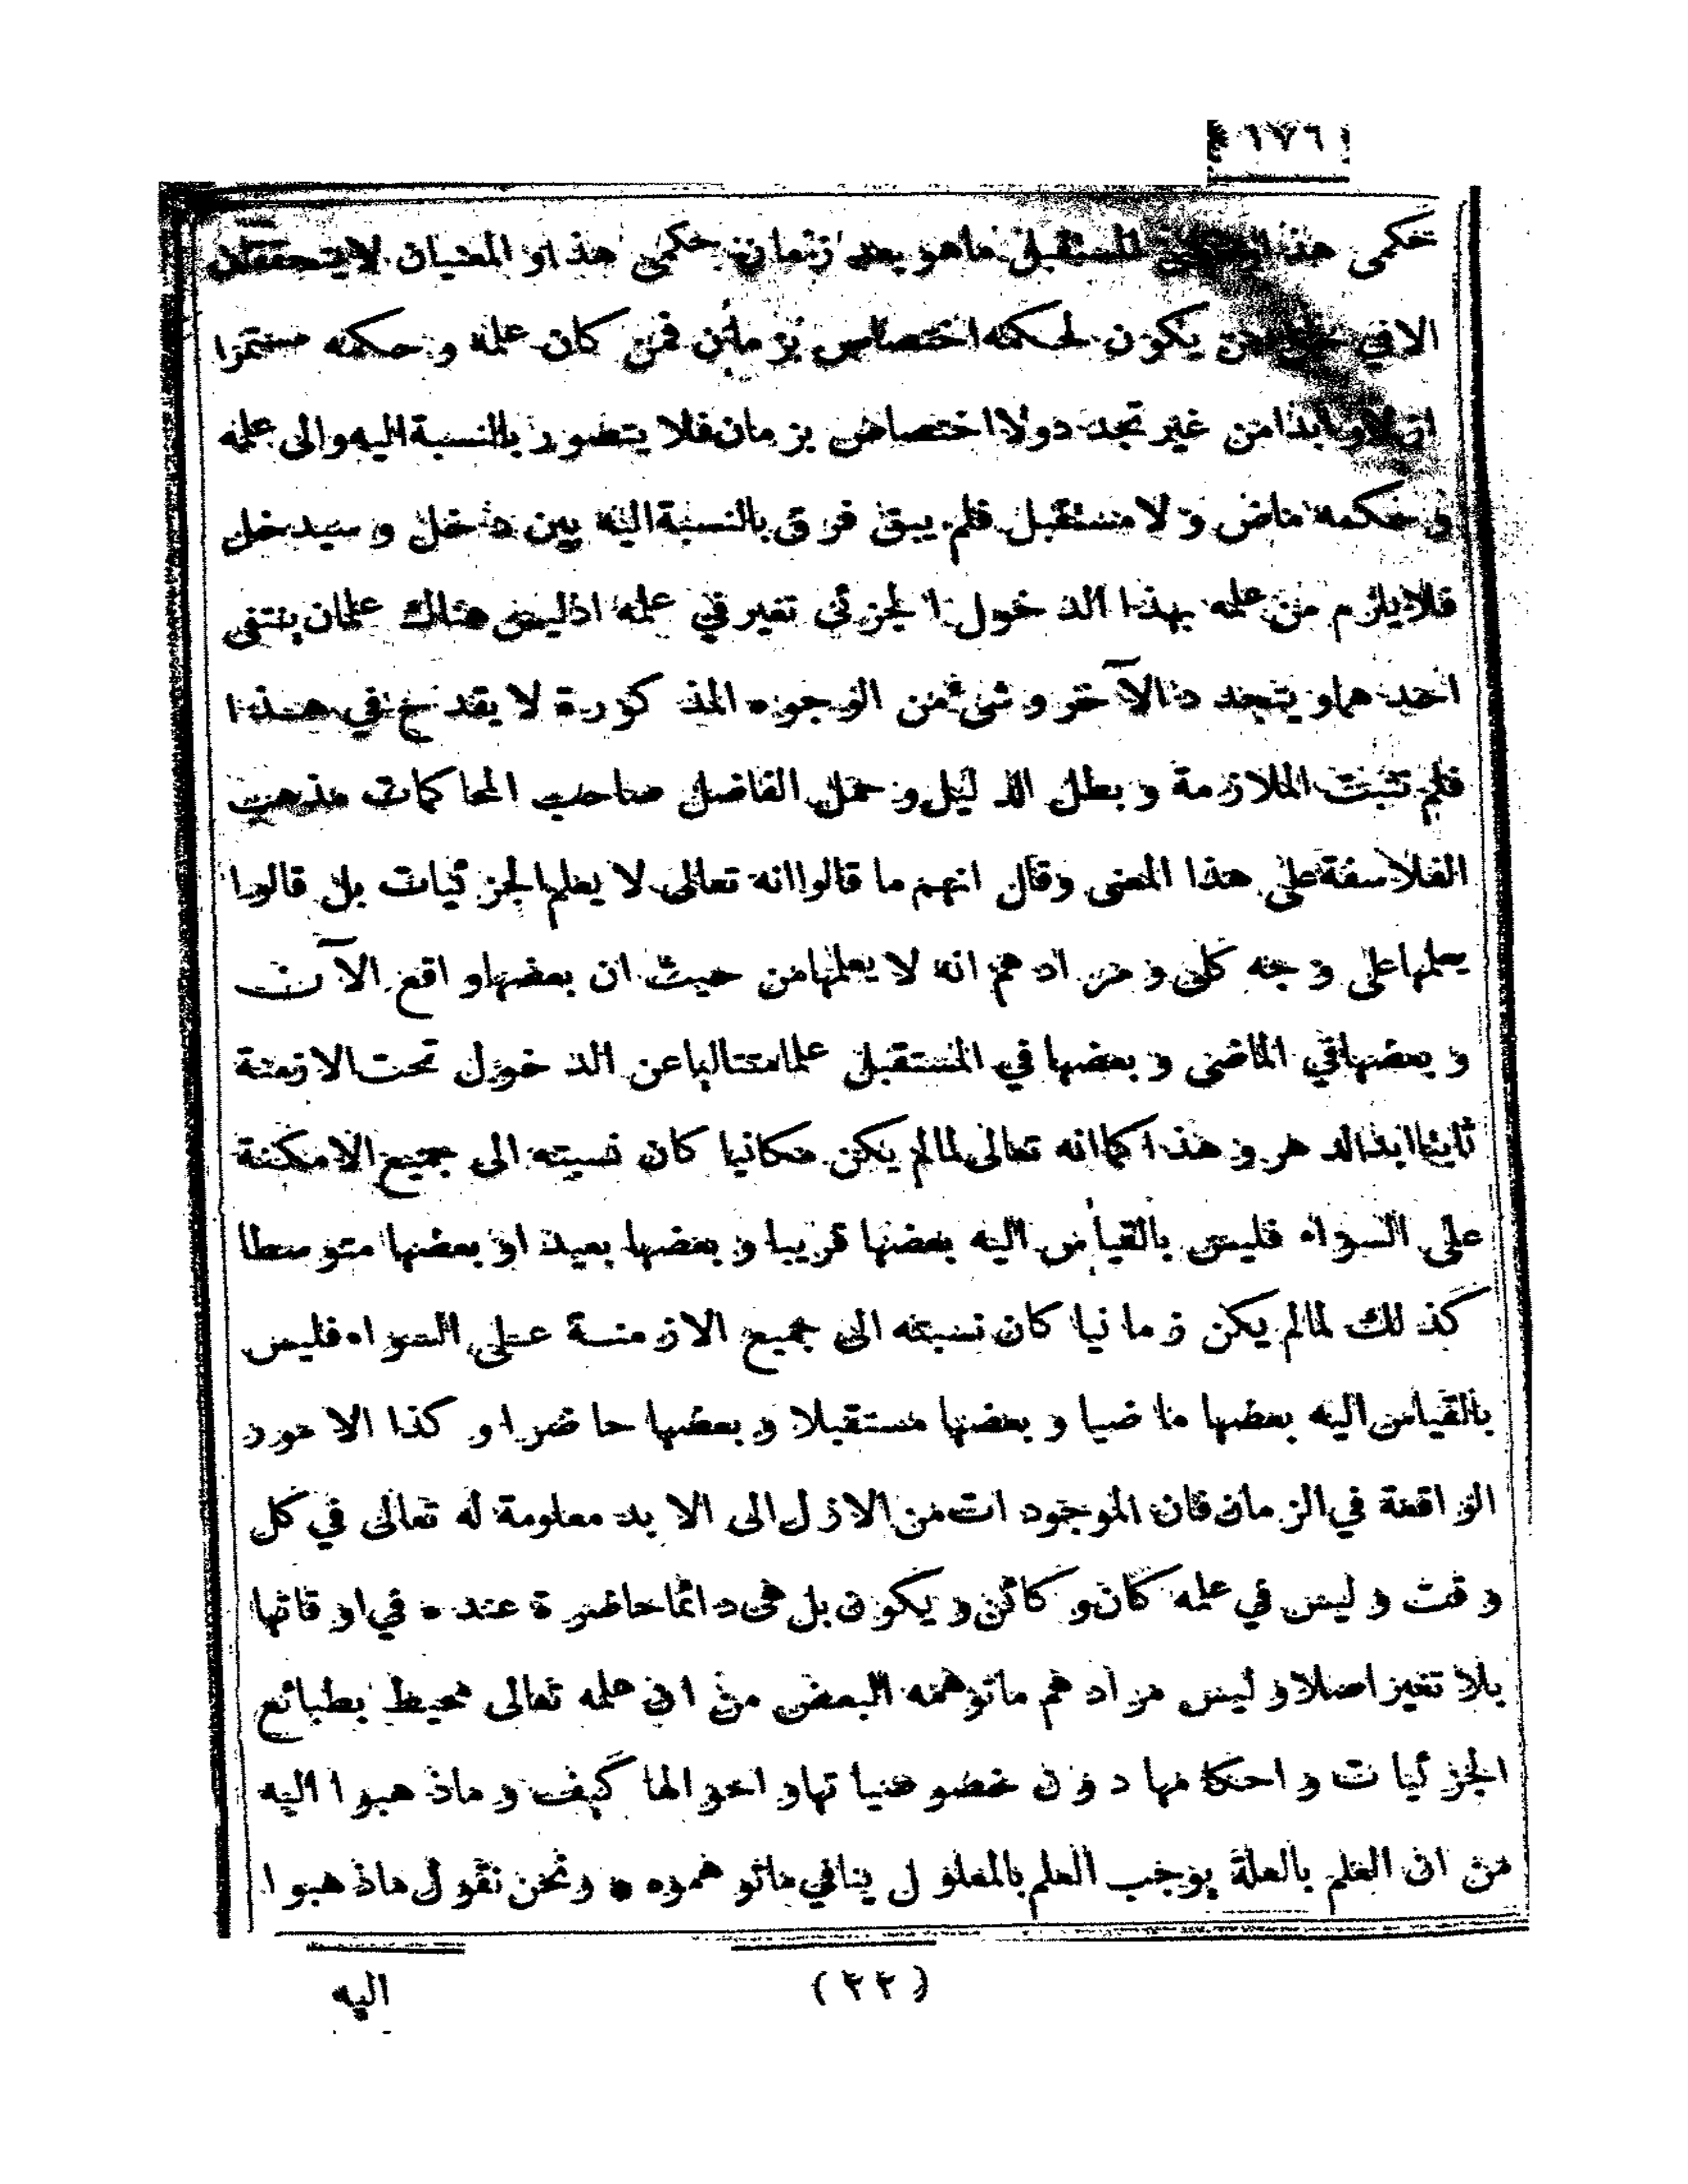 ١٧٦
حكمى هذا المستقبل ماهو بعد زمان حكمى هذا و المعنيان لا يتحققان
الا في من يكون لحكمه اختصاص بزمان فمن كان علمه و حكمه مستمرا
ازلا و ابدا من غير تجدد ولا اختصاص بزمان فلا يتصور بالنسبة اليه والى علمه
و حكمه ماض و لا مستقبل فلم يبق فرق بالنسبة اليه بين دخل و سيدخل
فلا يلزم من علمه بهذا الدخول الجزئى تغير في علمه اذ ليس هناك علمان ينتفى
احدهما و يتجدد الآخر و شئ من الوجوه المذكورة لا يقدح في هذا
فلم تثبت الملازمة و بطل الدليل و حمل الفاضل صاحب المحاكمات مذهب
الفلاسفة على هذا المعنى وقال انهم ما قالوا انه تعالى لا يعلم الجزئيات بل قالوا
يعلمها على وجه كلى و مرادهم انه لا يعلمها من حيث ان بعضها واقع الآن
و بعضها في الماضى و بعضها في المستقبل علما متعاليا عن الدخول تحت الازمنة
ثابتا ابد الدهر و هذا كما انه تعالى لما لم يكن مكانيا كان نسبته الى جميع الامكنة
على السواء فليس بالقياس اليه بعضها قريبا و بعضها بعيدا و بعضها متوسطا
كذلك لما لم يكن زمانيا كان نسبته الى جميع الازمنة على السواء فليس
بالقياس اليه بعضها ماضيا و بعضها مستقبلا و بعضها حاضرا و كذا الامور
الواقعة في الزمان فان الموجودات من الازل الى الابد معلومة له تعالى في كل
وقت و ليس في علمه كان و كائن و يكون بل هى دائما حاضرة عنده في اوقاتها
بلا تغير اصلا و ليس مرادهم ما توهمه البعض من ان علمه تعالى محيط بطبائع
الجزئيات و احكامها دون خصوصياتها و احوالها كيف و ما ذهبوا اليه
من ان العلم بالعلة يوجب العلم بالمعلول ينافي ما توهموه • و نحن نقول ما ذهبوا
(٢٢)
اليه